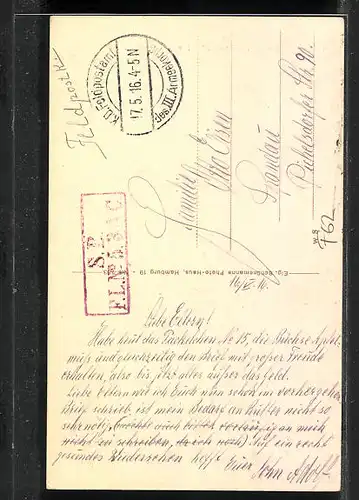 Feldpostkarte
K.D. Feldpostamt
17.5.16. 4-5 N
des III. Armeekorps
Familie
Otto
Spandau
Pichelsdorfer Str. 90.
S.B.
762
Eig. Schünemanns Photo-Haus, Hamburg 19
16/V. 16.
Liebe Eltern!
Habe heut das Packetchen No 15, die Büchse Apfel-
muß und gleichzeitig den Brief mit großer Freude
erhalten, also bis jetzt alles außer das Geld.
Liebe Eltern wie ich Euch nun schon im vorhergehen
Brief schrieb, ist mein Bedarf an Butter nicht so
sehr nötig,
nicht zu schreiben, Auf ein recht
gesundes Wiedersehen hofft Euer Sohn Adolf